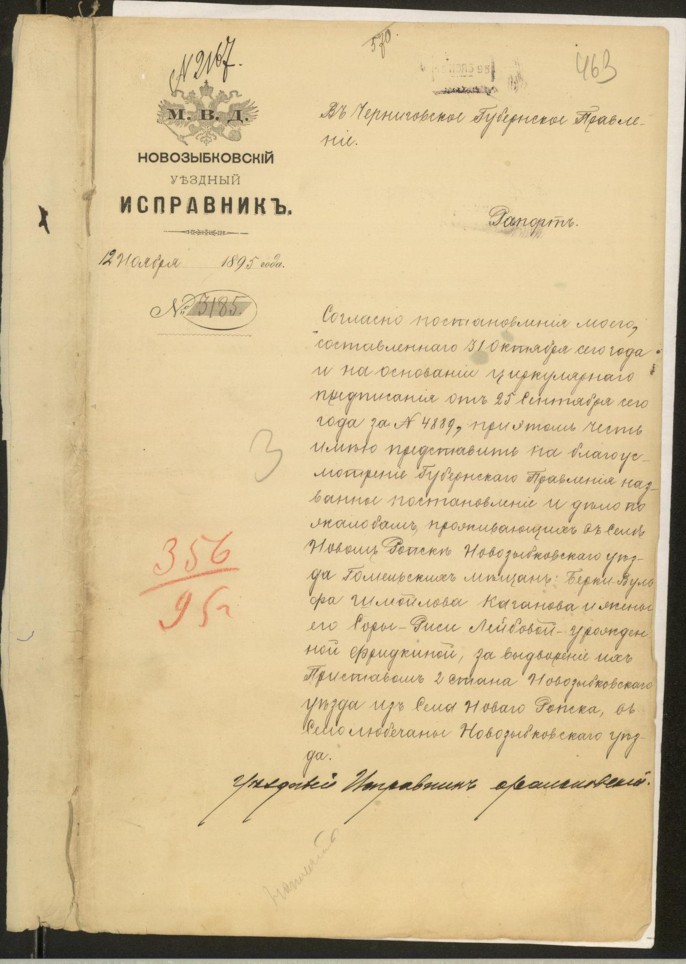 N 2167.
570.
463
М. В. Д.
НОВОЗЫБКОВСКІЙ
УѢЗДНЫЙ
ИСПРАВНИКЪ.
12 Ноября 1895 года.
№ 3185
Въ Черниговское Губернское Правле-
ніе.
Рапортъ.
Согласно постановленія моего,
составленнаго 31 Октября сего года
и на основаніи циркулярнаго
предписанія отъ 25 Сентября сего
года за N 4889, при этомъ честь
имѣю представить на благоус-
мотреніе Губернскаго Правленія наз-
ванное постановленіе и дѣло по
жалобамъ, проживающихъ въ Селѣ
Новомъ Ропскѣ Новозыбковскаго уѣз-
да Гомельскихъ мѣщанъ: Берки Вуль-
фа Шмойлова Каганова и жены
его Соры-Риси Лейбовой-урожден-
ной Фридкиной, за выдвореніе ихъ
Приставомъ 2 стана Новозыбковскаго
уѣзда изъ Села Новаго Ропска, въ
Село Любечаны Новозыбковскаго уѣз-
да.
Уѣздный Исправникъ
3
356
95 г